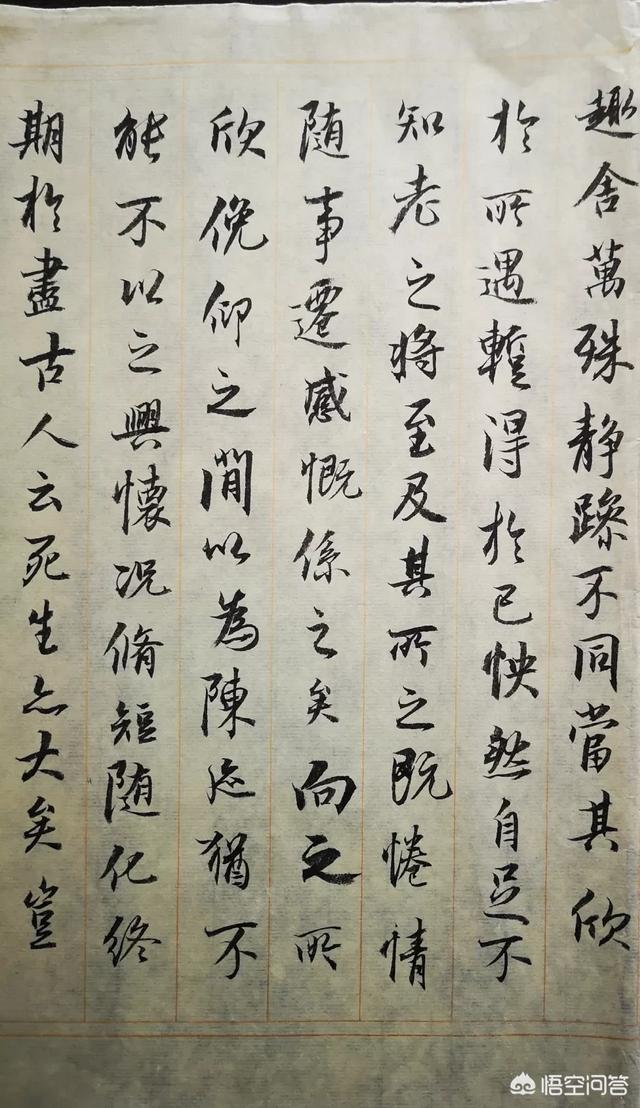 趣舍萬殊静躁不同當其欣
於所遇暫得於己怏然自足不
知老之將至及其所之既惓情
随事遷感慨係之矣向之所
欣俛仰之閒以為陳迹猶不
能不以之興懷況脩短随化終
期於盡古人云死生亦大矣豈
悟空问答